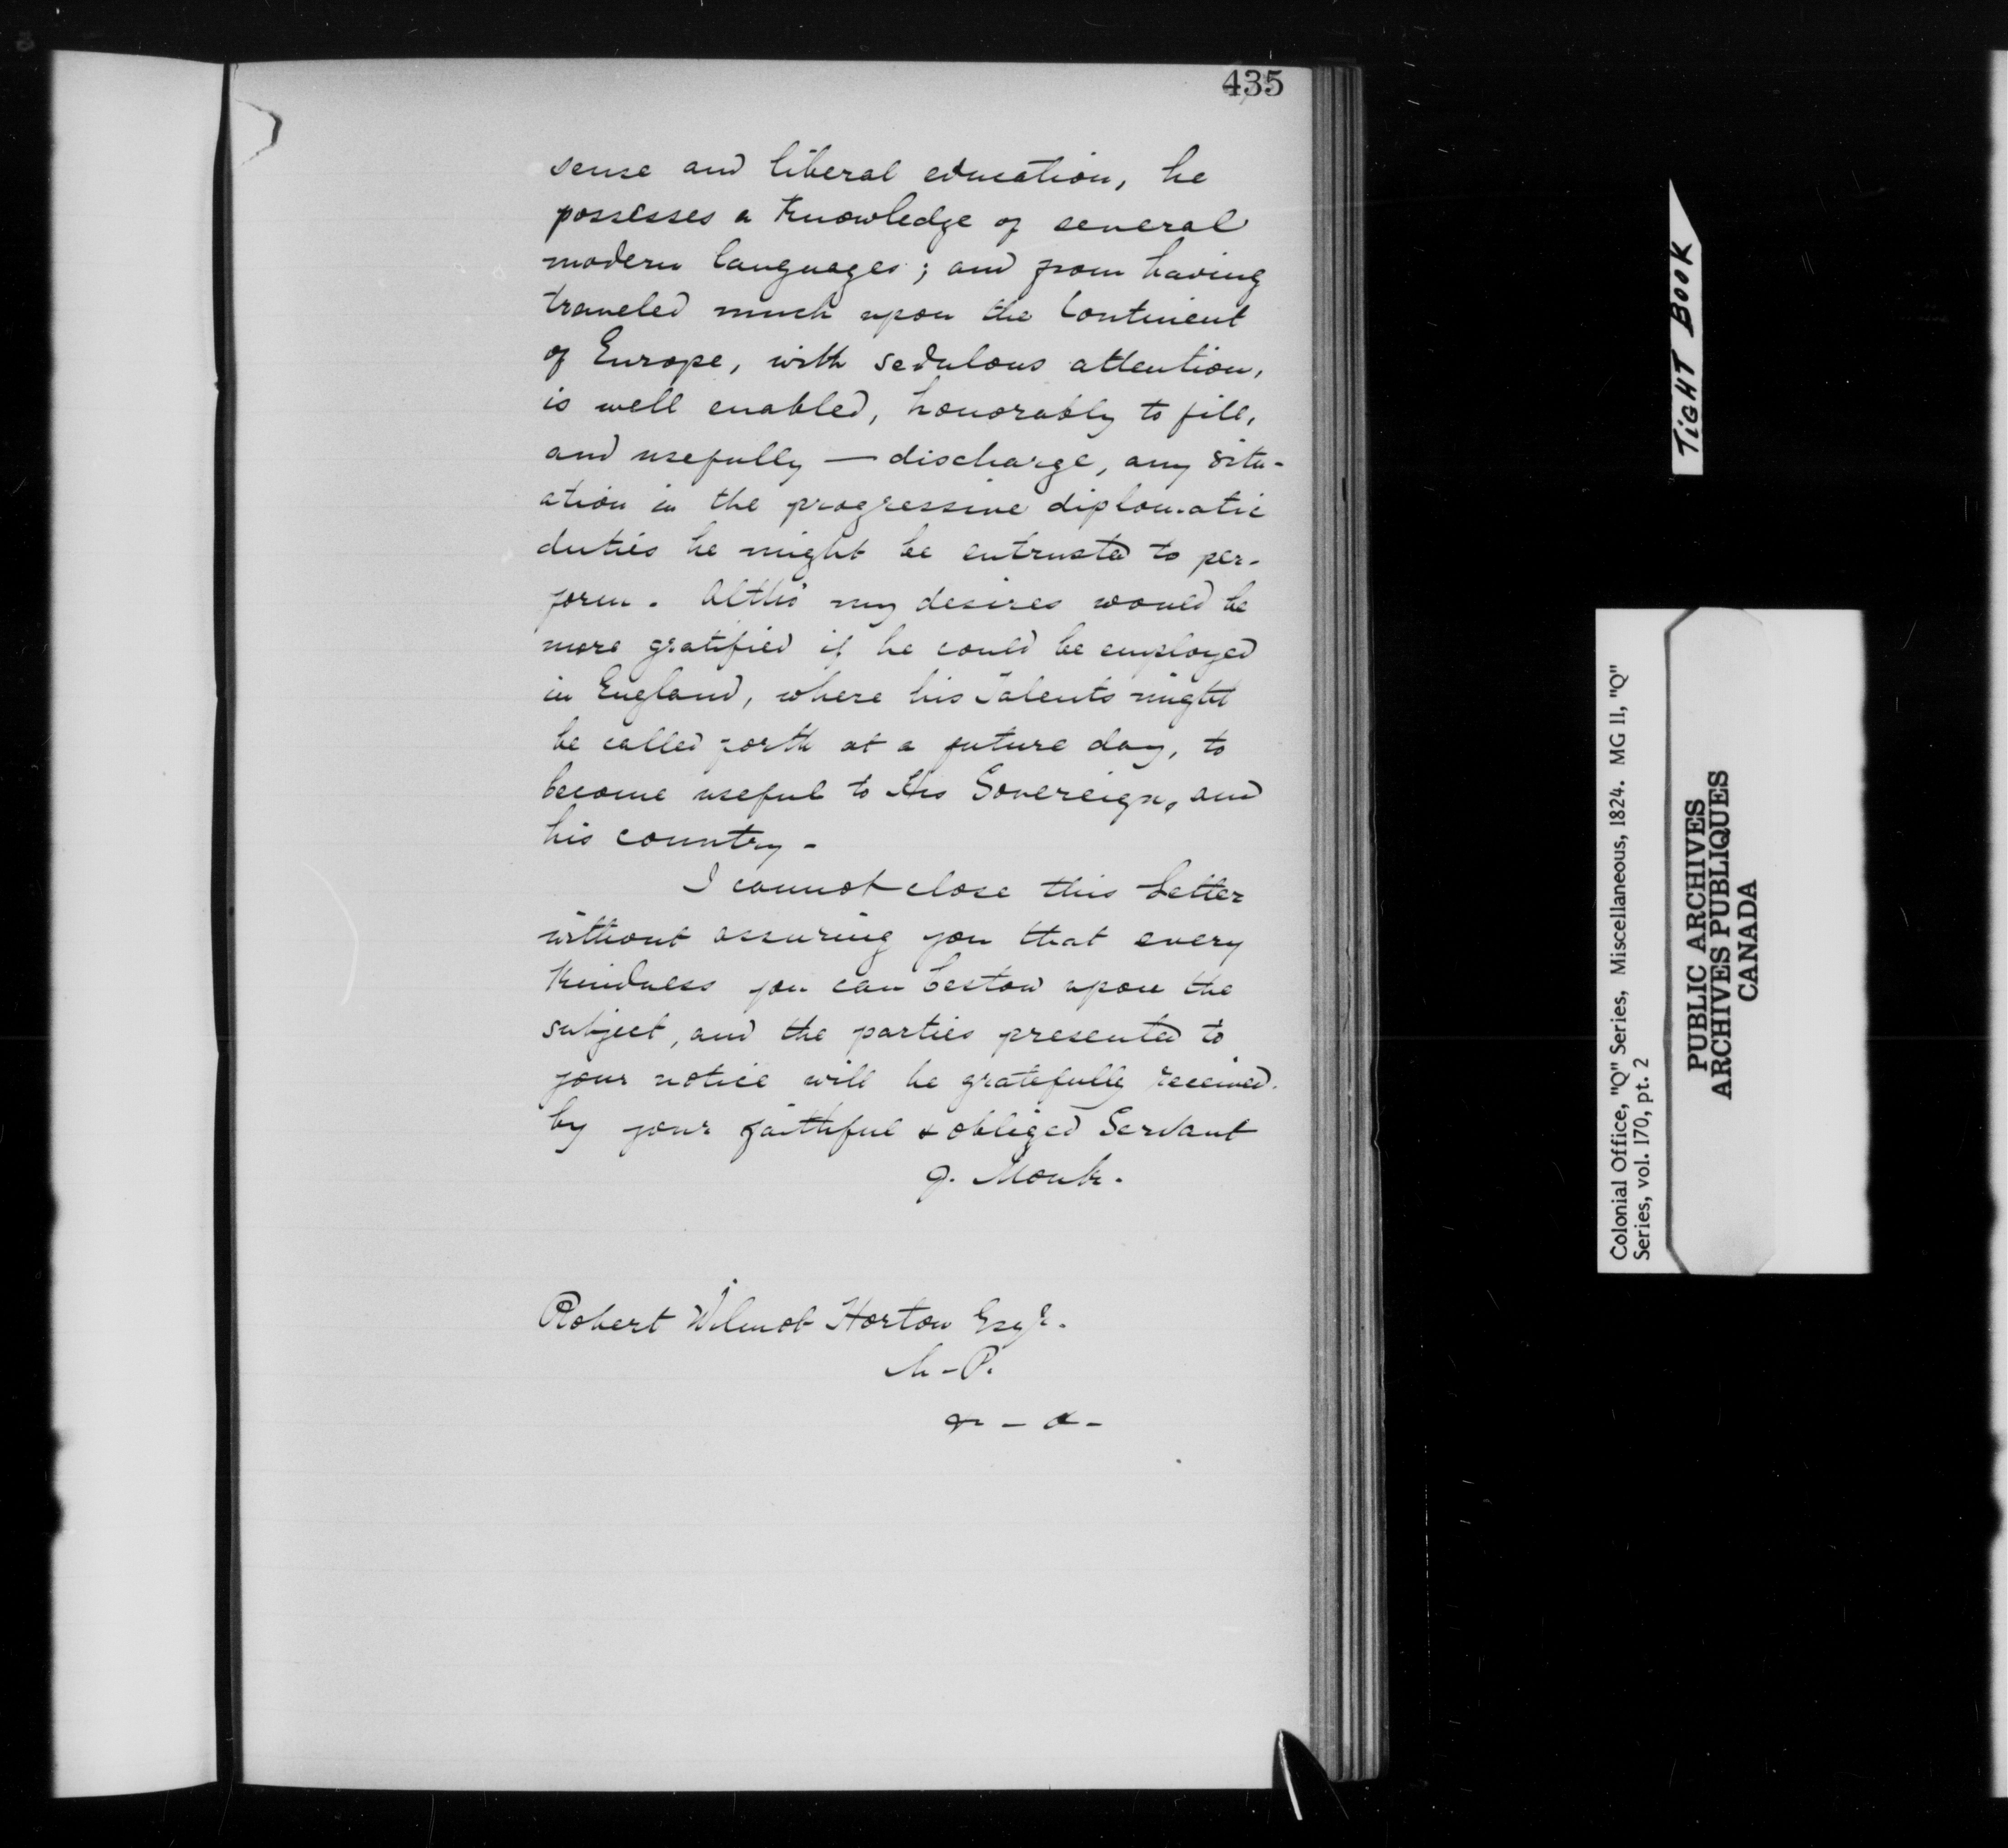 435
sense and liberal education, he
possesses a Knowledge of several
modern languages; and from having
traveled much upon the Continent
of Europe, with sedulous attention,
is well enabled, honorably to fill,
and usefully — discharge, any situ-
ation in the progressive diplomatic
duties he might be entrusted to per-
form. Altho' my desires would be
more gratified if he could be employed
in England, where his Talents might
be called forth at a future day, to
become useful to His Sovereign, and
his country -
I cannot close this Letter
without assuring you that every
Kindness you can bestow upon the
subject, and the parties presented to
your notice will be gratefully received.
by your faithful & obliged Servant
J. Monk.
Robert Wilmot Horton Esqr.
M - P.
& - &-
TIGHT BOOK
Colonial Office, "Q" Series, Miscellaneous, 1824. MG 11, "Q"
Series, vol. 170, pt. 2
PUBLIC ARCHIVES
ARCHIVES PUBLIQUES
CANADA